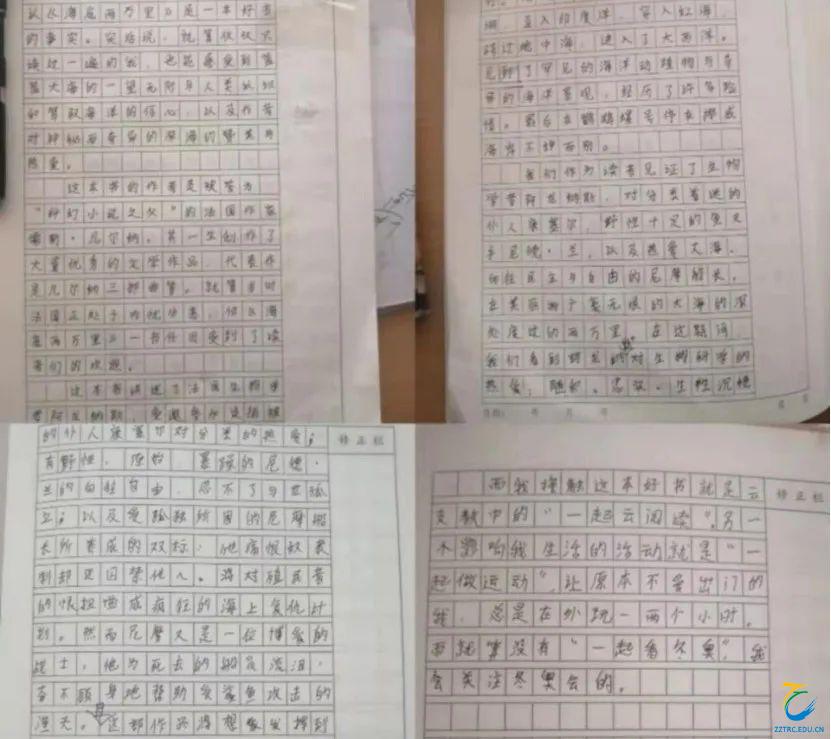 认《海底两万里》是一本好书
的事实。实话说，就算仅仅只
读过一遍的我，也能感受到
大海的一望无际与人类
海洋的信心，以及作者
对神秘而奇异的深海的赞美与
热爱。
这本书的作者是被誉为
“科幻小说之父”的法国作家
儒勒·凡尔纳。其一生创作了
大量优秀的文学作品，代表作
是凡尔纳三部曲等。就算当时
法国正处于内忧外患，但《海
底两万里》一书仍旧受到了读
者们的欢迎。
这本书讲述了法国生物学
者阿龙纳斯，受邀参加追捕
进入印度洋，穿入红海，
穿过地中海，进入了大西洋。
见到了罕见的海洋动植物与奇
异的海洋景观，经历了许多险
情。最后在鹦鹉螺号停在挪威
海岸不辞而别。
我们作为读者见证了生物
学者阿龙纳斯，对分类着迷的
仆人康塞尔，野性十足的鱼叉
手尼德·兰，以及热爱大海、
向往民主与自由的尼摩船长，
在美丽而广袤无垠的大海的深
处度过的两万里。在这期间，
我们看到阿龙的对生物科学的
热爱，随和，忍让，生性沉稳
日期： 年 月 日
的仆人康塞尔对分类的热爱；
有野性、原始、暴躁的尼德·
兰的向往自由，忍不了与世孤
立；以及受孤独所困的尼摩船
长所养成的双标：他痛恨奴隶
制却又囚禁他人。将对殖民者
的恨扭曲成疯狂的海上复仇计
划。然而尼摩又是一位博爱的
战士，他为死去的船员流泪，
奋不顾身地帮助受鲨鱼攻击的
渔夫。这部作品将想象发挥到
修正栏
而我接触这本好书就是云
支教中的“一起云阅读”。另一
个影响我生活的活动就是“一
起做运动”，让原本不爱出门的
我，总是在外跑一两个小时。
而就算没有“一起看冬奥”，我
会关注冬奥会的。
修正栏
ZZTRC.EDU.CN